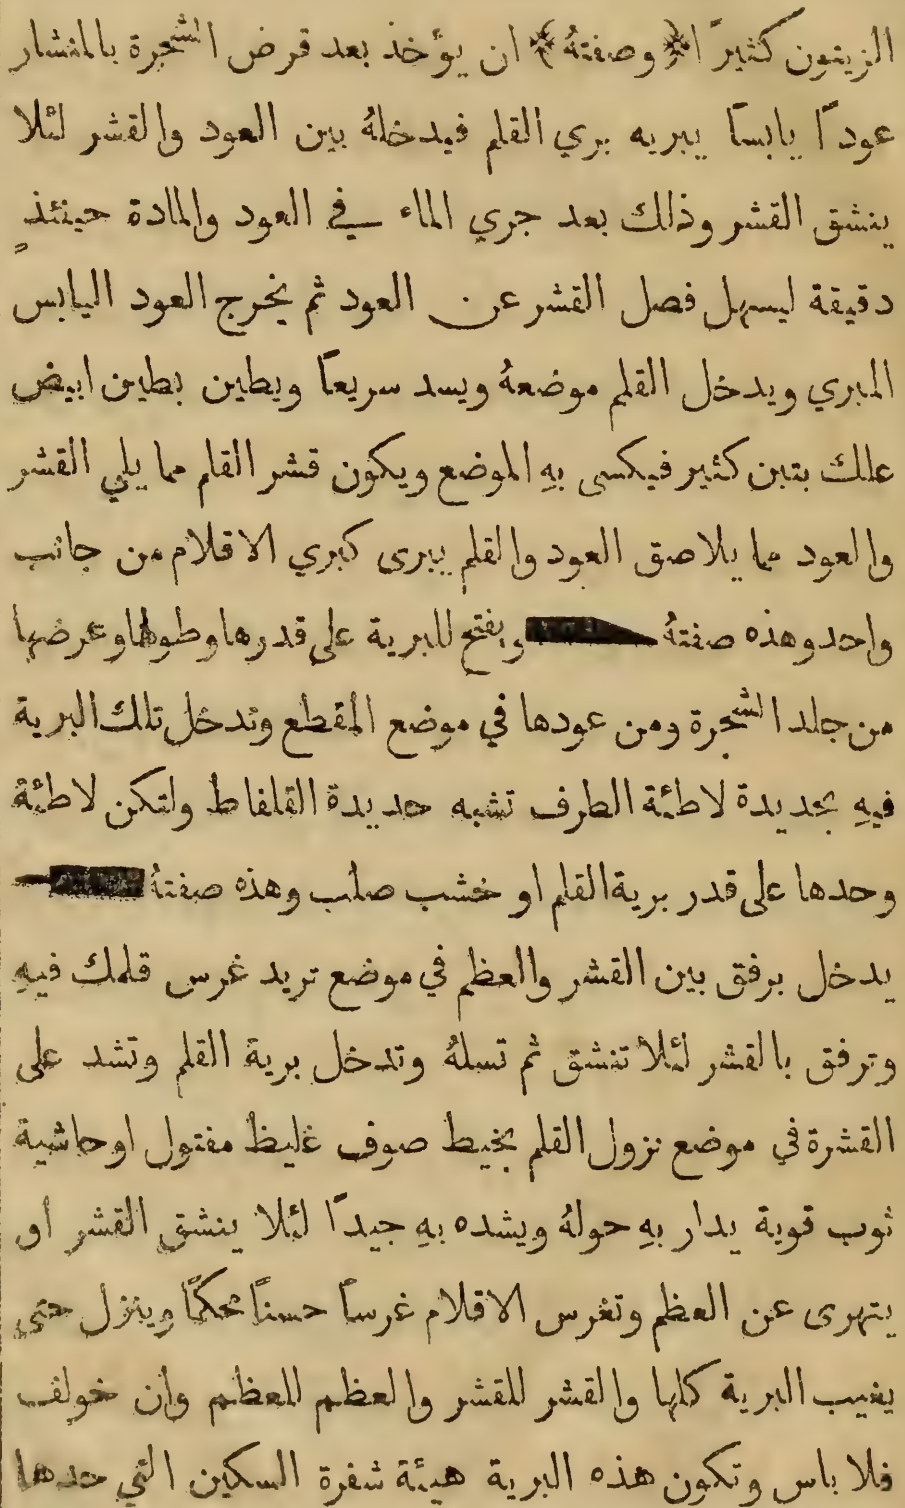 الزيتون كثيرًا ﴿وصفتهُ﴾ ان يؤخذ بعد قرض الشجرة بالمنشار
عودًا يابسًا يبريه بري القلم فيدخلهُ بين العود والقشر لئلا
ينشق القشر وذلك بعد جري الماء في العود والمادة حينئذٍ
دقيقة ليسهل فصل القشر عن العود ثم يخرج العود اليابس
المبري ويدخل القلم موضعهُ ويسد سريعًا ويطين بطين ابيض
علك بتبن كثير فيكسى بهِ الموضع ويكون قشر القلم مما يلي القشر
والعود مما يلاصق العود والقلم يبرى كبري الاقلام من جانب
واحد وهذه صفتهُ ويفتح للبرية على قدرها وطولها وعرضها
من جلد الشجرة ومن عودها في موضع المقطع وتدخل تلك البرية
فيهِ بحديدة لاطئة الطرف تشبه حديدة القلفاط ولتكن لاطئة
وحدها على قدر برية القلم او خشب صلب وهذه صفتهُ
يدخل برفق بين القشر والعظم في موضع تريد غرس قلمك فيهِ
وترفق بالقشر لئلا تنشق ثم تسلهُ وتدخل برية القلم وتشد على
القشرة في موضع نزول القلم بخيط صوف غليظ مفتول او حاشية
ثوب قوية يدار بهِ حولهُ ويشده بهِ جيدًا لئلا ينشق القشر او
يتهرى عن العظم وتغرس الاقلام غرسًا حسنًا محكمًا وينزل حتى
يغيب البرية كلها والقشر للقشر والعظم للعظم وان خولف
فلا باس وتكون هذه البرية هيئة شفرة السكين التي حدها